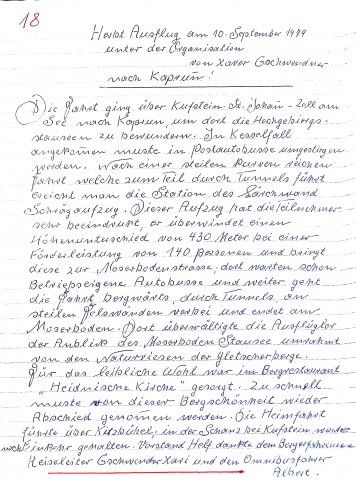 18
Herbst Ausflug am 10. September 1979
unter der Organisation
von Xaver Gschwendner
nach Kaprun!
Die Fahrt ging über Kufstein - St. Johann - Zell am
See nach Kaprun, um dort die Hochgebirgs-
stauseen zu bewundern. In Kesselfall
angekommen musste in Postautobusse umgestiegen
werden. Nach einer steilen kurvenreichen
Fahrt welche zum Teil durch Tunnels führt
erreicht man die Station des Lärchwand
Schrägaufzug. Dieser Aufzug hat die Teilnehmer
sehr beeindruckt, er überwindet einen
Höhenunterschied von 430 Meter bei einer
Förderleistung von 140 Personen und bringt
diese zur Moserbodenstrasse; dort warten schon
Betriebseigene Autobusse und weiter geht
die Fahrt bergwärts, durch Tunnels, an
steilen Felswänden vorbei und endet am
Moserboden. Dort überwältigte die Ausflügler
der Anblick des Moserboden Stausee umrahmt
von den Naturriesen der Gletscherberge.
Für das leibliche Wohl war im Bergrestaurant
"Heidnische Kirche" gesorgt. Zu schnell
musste von dieser Bergschönheit wieder
Abschied genommen werden. Die Heimfahrt
führte über Kitzbühel, in der Schanz bei Kufstein wurde
noch Einkehr gehalten. Vorstand Helf dankte dem
Reiseleiter Gschwendner Xari und den Omnibusfahrer
Albert.